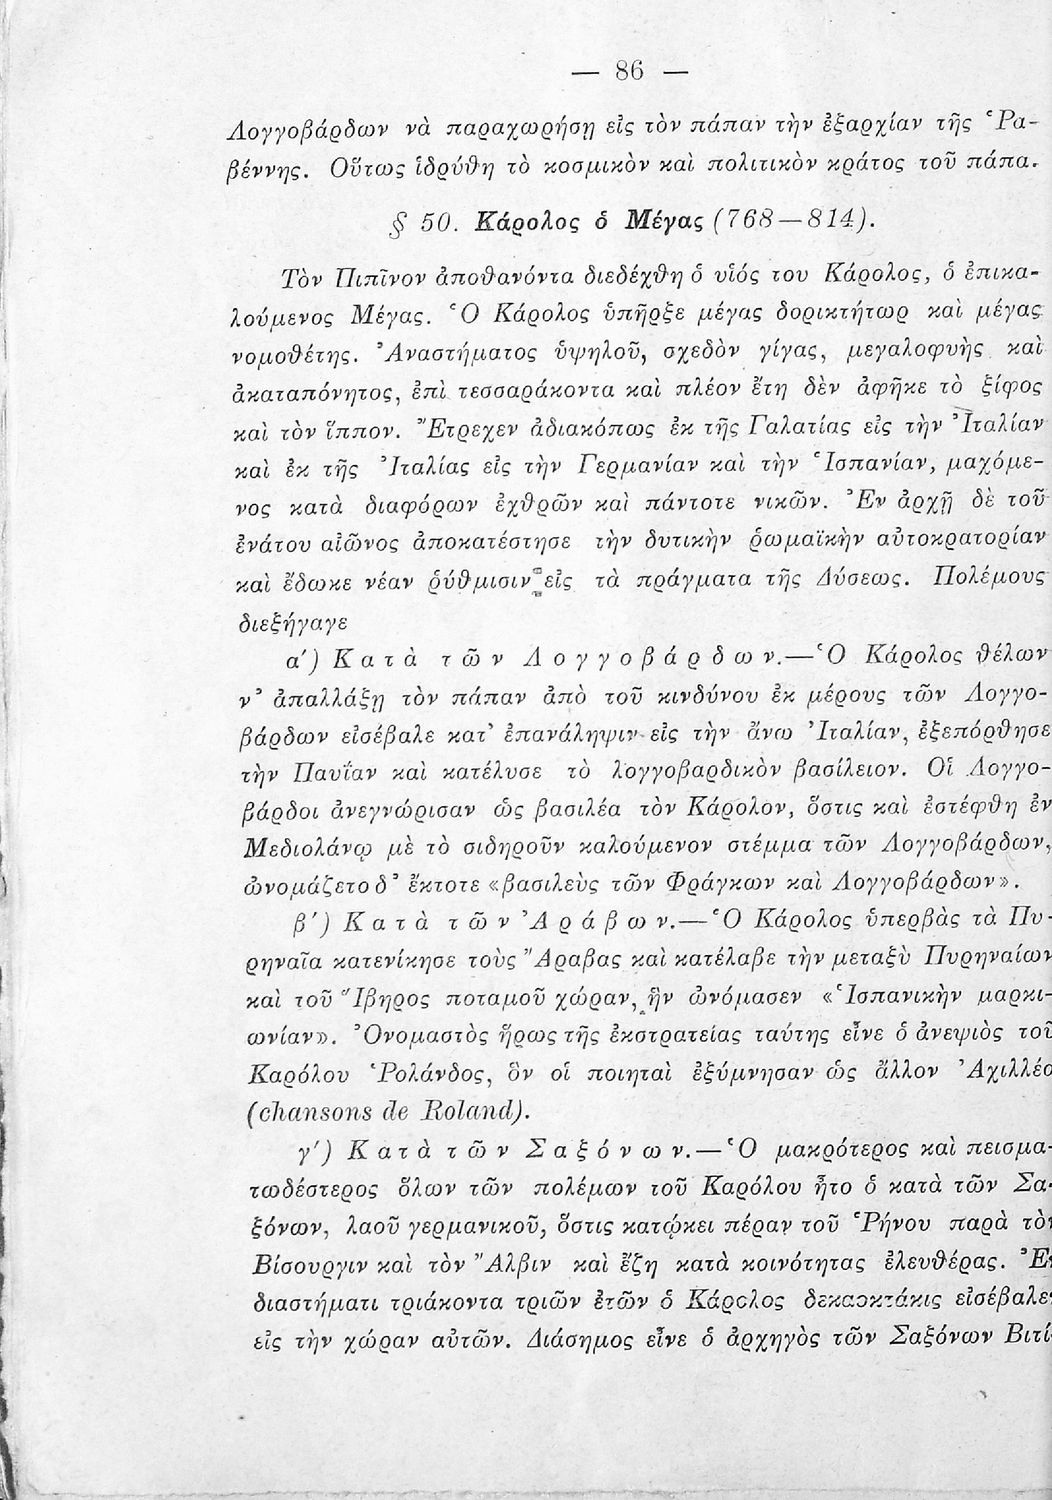 — 86 —
Λογγοβάρδων νὰ παραχωρήσῃ εἰς τὸν πάπαν τὴν ἐξαρχίαν τῆς Ῥα-
βέννης. Οὕτως ἱδρύθη τὸ κοσμικὸν καὶ πολιτικὸν κράτος τοῦ πάπα.
§ 50. Κάρολος ὁ Μέγας (768—814).
Τὸν Πιπῖνον ἀποθανόντα διεδέχθη ὁ υἱός του Κάρολος, ὁ ἐπικα-
λούμενος Μέγας. Ὁ Κάρολος ὑπῆρξε μέγας δορικτήτωρ καὶ μέγας
νομοθέτης. Ἀναστήματος ὑψηλοῦ, σχεδὸν γίγας, μεγαλοφυὴς καὶ
ἀκαταπόνητος, ἐπὶ τεσσαράκοντα καὶ πλέον ἔτη δὲν ἀφῆκε τὸ ξίφος
καὶ τὸν ἵππον. Ἔτρεχεν ἀδιακόπως ἐκ τῆς Γαλατίας εἰς τὴν Ἰταλίαν
καὶ ἐκ τῆς Ἰταλίας εἰς τὴν Γερμανίαν καὶ τὴν Ἱσπανίαν, μαχόμε-
νος κατὰ διαφόρων ἐχθρῶν καὶ πάντοτε νικῶν. Ἐν ἀρχῇ δὲ τοῦ
ἐνάτου αἰῶνος ἀποκατέστησε τὴν δυτικὴν ῥωμαϊκὴν αὐτοκρατορίαν
καὶ ἔδωκε νέαν ῥύθμισιν εἰς τὰ πράγματα τῆς Δύσεως. Πολέμους
διεξήγαγε
α΄) Κατὰ τῶν Λογγοβάρδων.—Ὁ Κάρολος θέλων
ν’ ἀπαλλάξῃ τὸν πάπαν ἀπὸ τοῦ κινδύνου ἐκ μέρους τῶν Λογγο-
βάρδων εἰσέβαλε κατ’ ἐπανάληψιν εἰς τὴν ἄνω Ἰταλίαν, ἐξεπόρθησε
τὴν Παυΐαν καὶ κατέλυσε τὸ λογγοβαρδικὸν βασίλειον. Οἱ Λογγο-
βάρδοι ἀνεγνώρισαν ὡς βασιλέα τὸν Κάρολον, ὅστις καὶ ἐστέφθη ἐν
Μεδιολάνῳ μὲ τὸ σιδηροῦν καλούμενον στέμμα τῶν Λογγοβάρδων,
ὠνομάζετο δ’ ἔκτοτε «βασιλεὺς τῶν Φράγκων καὶ Λογγοβάρδων».
β΄) Κατὰ τῶν Ἀράβων.—Ὁ Κάρολος ὑπερβὰς τὰ Πυ-
ρηναῖα κατενίκησε τοὺς Ἄραβας καὶ κατέλαβε τὴν μεταξὺ Πυρηναίων
καὶ τοῦ Ἴβηρος ποταμοῦ χώραν, ἣν ὠνόμασεν «Ἱσπανικὴν μαρκι-
ωνίαν». Ὀνομαστὸς ἥρως τῆς ἐκστρατείας ταύτης εἶνε ὁ ἀνεψιὸς τοῦ
Καρόλου Ῥολάνδος, ὃν οἱ ποιηταὶ ἐξύμνησαν ὡς ἄλλον Ἀχιλλέα
(chansons de Roland).
γ΄) Κατὰ τῶν Σαξόνων.—Ὁ μακρότερος καὶ πεισμα-
τωδέστερος ὅλων τῶν πολέμων τοῦ Καρόλου ἦτο ὁ κατὰ τῶν Σα-
ξόνων, λαοῦ γερμανικοῦ, ὅστις κατῴκει πέραν τοῦ Ῥήνου παρὰ τὸν
Βίσουργιν καὶ τὸν Ἄλβιν καὶ ἔζη κατὰ κοινότητας ἐλευθέρας. Ἐν
διαστήματι τριάκοντα τριῶν ἐτῶν ὁ Κάρολος δεκαοκτάκις εἰσέβαλεν
εἰς τὴν χώραν αὐτῶν. Διάσημος εἶνε ὁ ἀρχηγὸς τῶν Σαξόνων Βιτί-